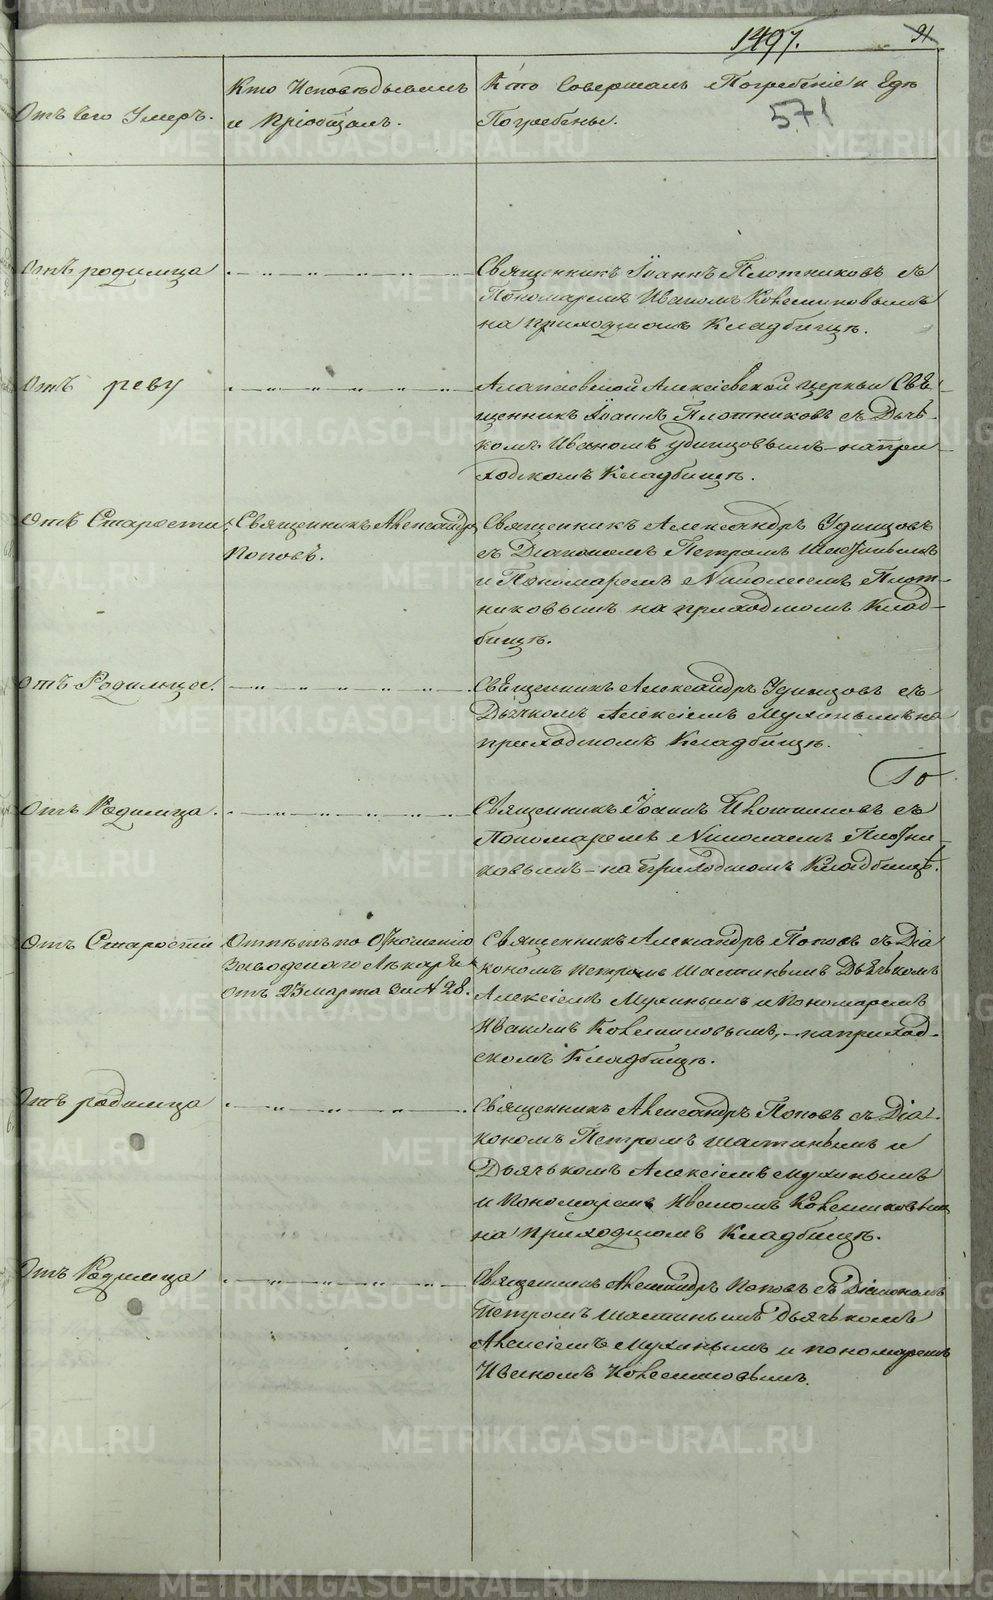 1497.
91
571
Отъ чего Умеръ.
Кто Исповѣдывалъ
и Пріобщалъ.
Кто Совершалъ Погребеніе и Гдѣ
Погребены.
Отъ родимца
Священникъ Іоаннъ Плотниковъ съ
Пономаремъ Иваномъ Ковелиновымъ
на приходскомъ Кладбищѣ.
Отъ реву
Алапаевской Алексіевской церкви Свя-
щенникъ Іоаннъ Плотниковъ съ Дьяч-
комъ Иваномъ Удинцовымъ на при-
ходскомъ Кладбищѣ.
Отъ Старости
Священникъ Александръ
Поповъ.
Священникъ Александръ Удинцовъ
съ Діакономъ Петромъ Шастинымъ
и Пономаремъ Николаемъ Плот-
никовымъ на приходскомъ Клад-
бищѣ.
Отъ Родимца.
Священникъ Александръ Удинцовъ съ
Дьячкомъ Алексіемъ Мухинымъ на
приходскомъ Кладбищѣ.
Отъ Родимца.
Священникъ Іоаннъ Плотниковъ съ
Пономаремъ Николаемъ Плотни-
ковымъ на Приходскомъ Кладбищѣ.
Отъ Старости
Отпѣтъ по Отношенію
Заводскаго Лѣкаря
отъ 23 марта за № 28.
Священникъ Александръ Поповъ съ Діа
кономъ Петромъ Шастинымъ Дьячькомъ
Алексіемъ Мухинымъ и Пономаремъ
Иваномъ Ковелиновымъ, на приход-
скомъ Кладбищѣ.
Отъ родимца
Священникъ Александръ Поповъ съ Діа-
кономъ Петромъ Шастинымъ и
Дьячькомъ Алексіемъ Мухинымъ
и Пономаремъ Иваномъ Ковелиновымъ
на Приходскомъ Кладбищѣ.
Отъ Родимца
Священникъ Александръ Поповъ съ Діакономъ
Петромъ Шастинымъ Дьячькомъ
Алексіемъ Мухинымъ и пономаремъ
Иваномъ Ковелиновымъ.
METRIKI.GASO-URAL.RU